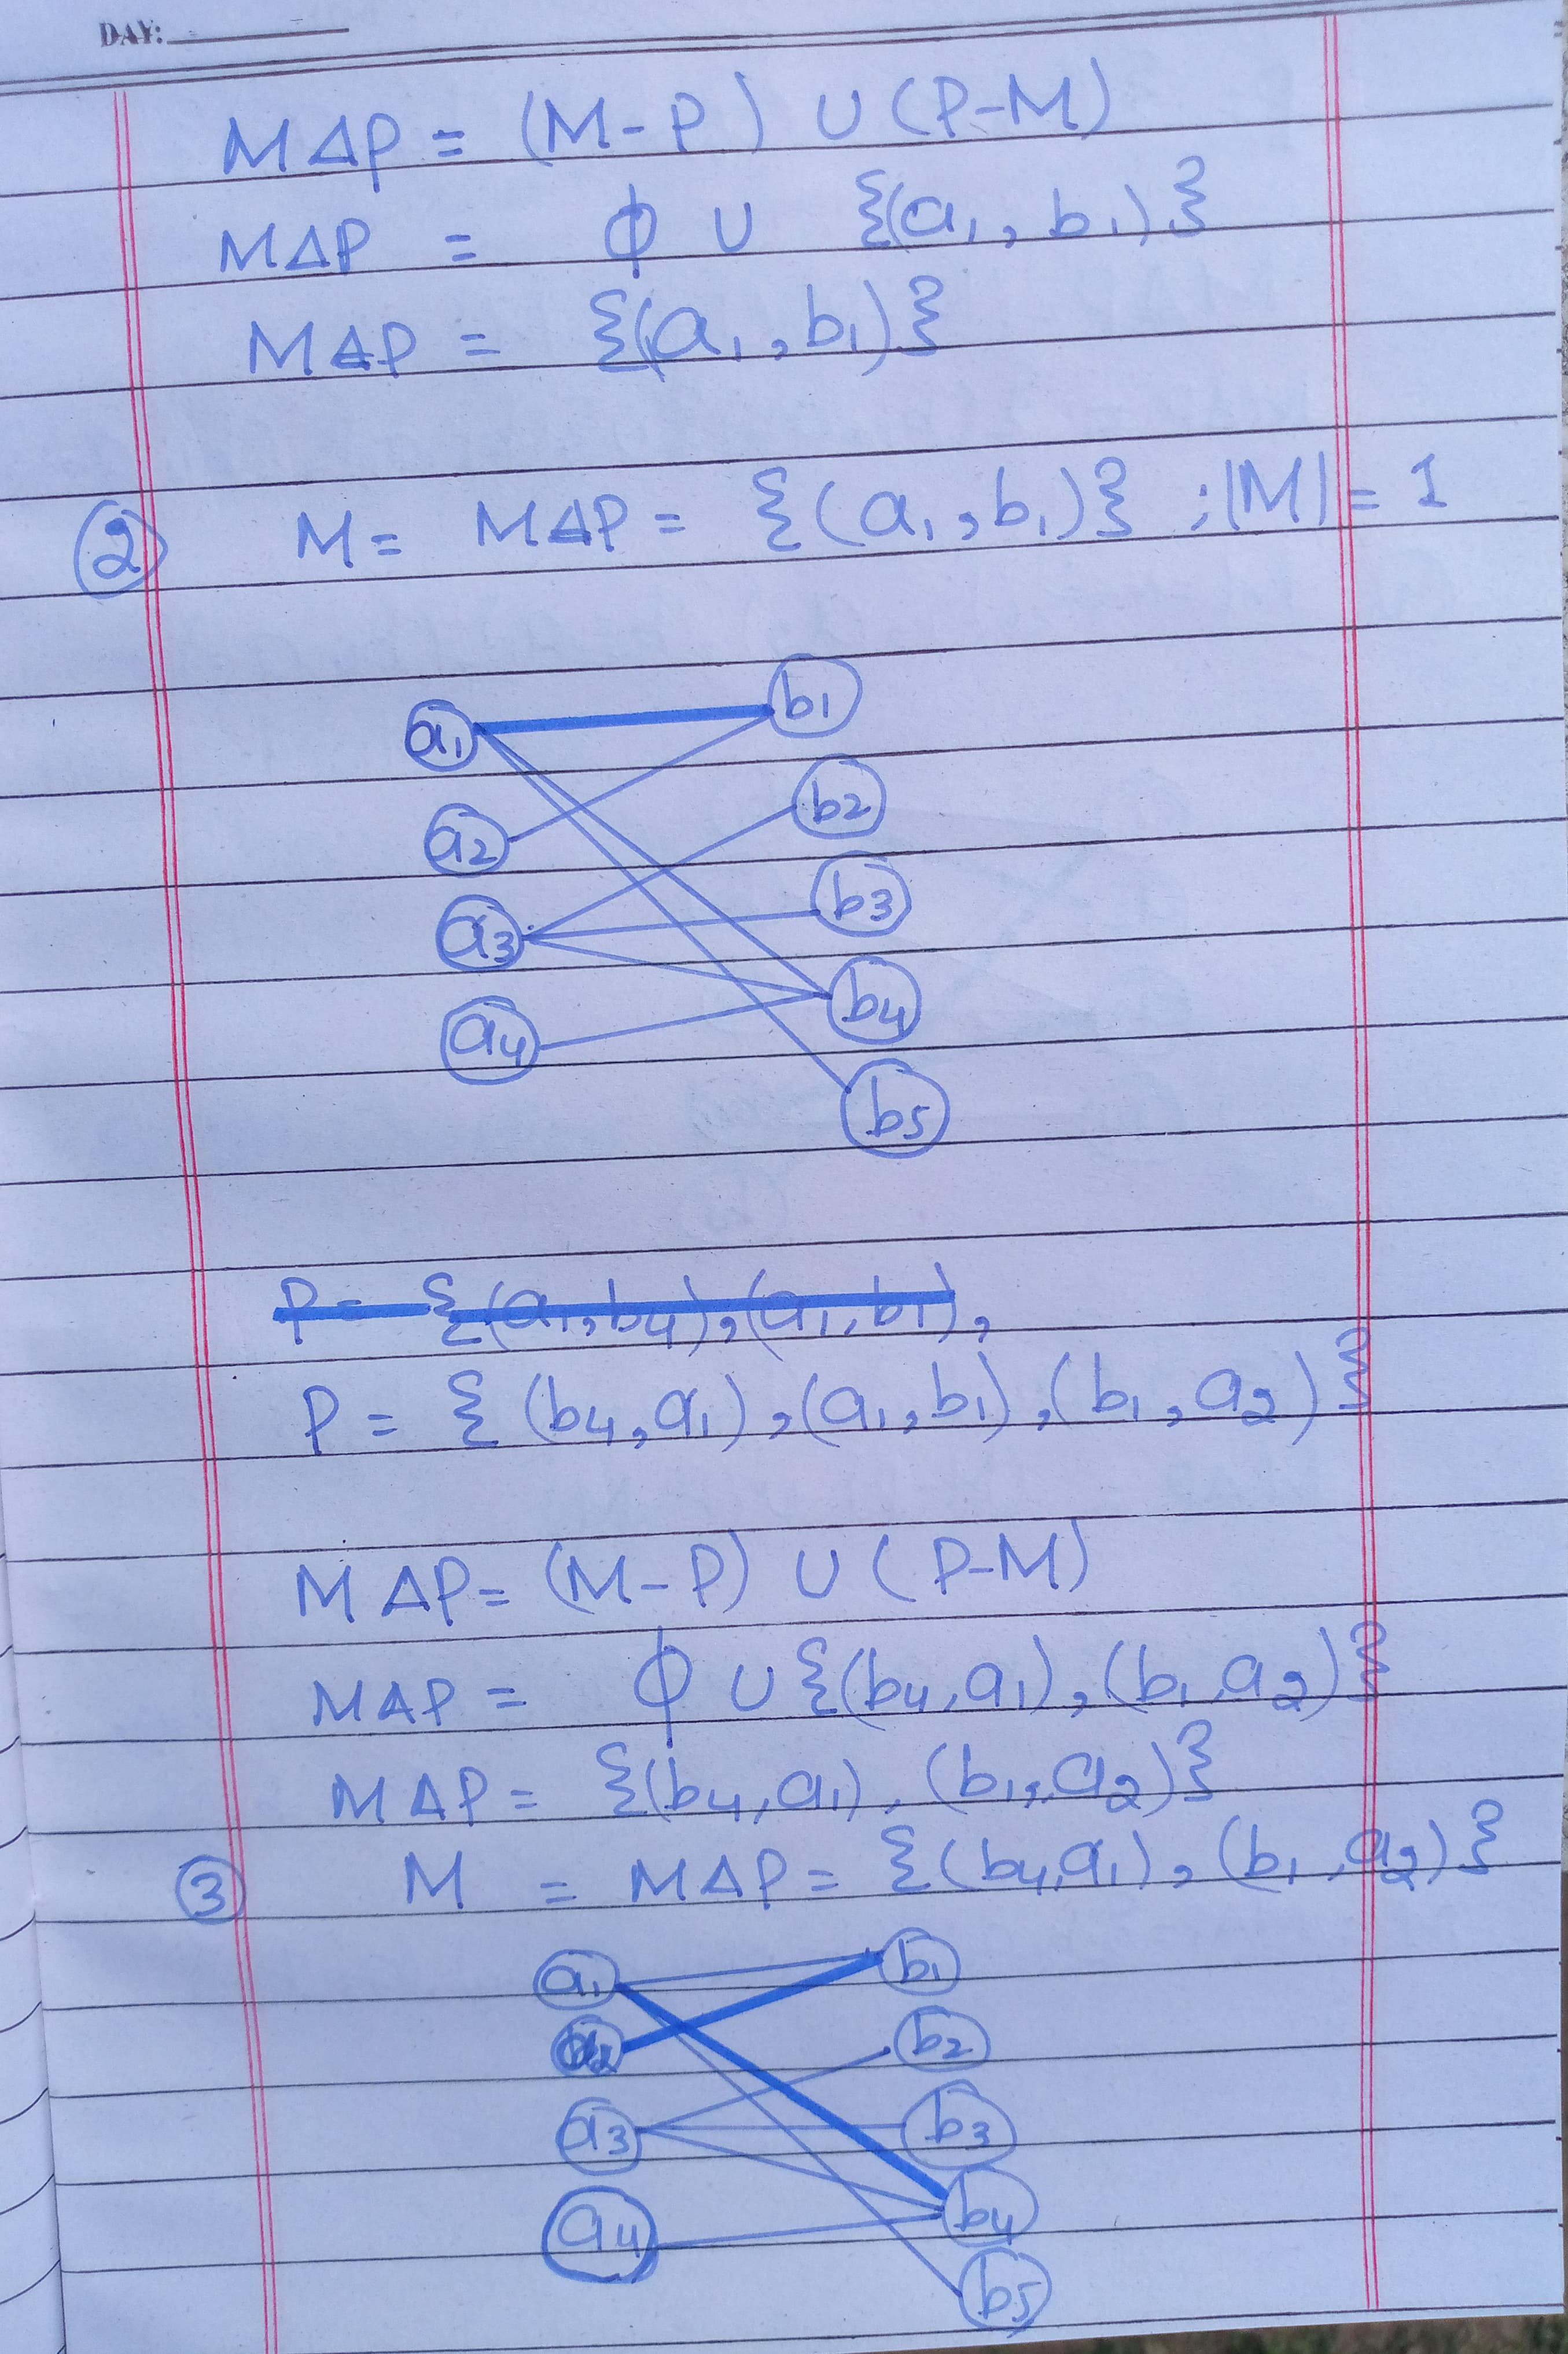 DAY:
M∆P = (M-P) ∪ (P-M)
M∆P = ϕ ∪ {(a₁, b₁)}
M∆P = {(a₁, b₁)}
② M = M∆P = {(a₁, b₁)} ; |M| = 1
a₁ b₁
a₂ b₂
a₃ b₃
a₄ b₄
b₅
P = {(a₁, b₄), (a₁, b₁),
P = {(b₄, a₁), (a₁, b₁), (b₁, a₂)}
M∆P = (M-P) ∪ (P-M)
M∆P = ϕ ∪ {(b₄, a₁), (b₁, a₂)}
M∆P = {(b₄, a₁), (b₁, a₂)}
③ M = M∆P = {(b₄, a₁), (b₁, a₂)}
a₁ b₁
a₂ b₂
a₃ b₃
a₄ b₄
b₅